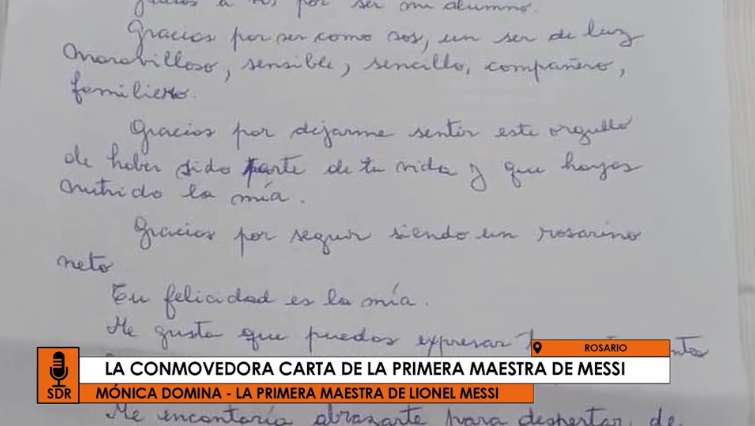 gracias a vos por ser mi alumno.
Gracias por ser como sos, un ser de luz
maravilloso, sensible, sencillo, compañero,
familiero.
Gracias por dejarme sentir este orgullo
de haber sido parte de tu vida y que hayas
nutrido la mía.
Gracias por seguir siendo un rosarino
neto
Tu felicidad es la mía.
Me gusta que puedas expresar
ROSARIO
LA CONMOVEDORA CARTA DE LA PRIMERA MAESTRA DE MESSI
SDR
MÓNICA DOMINA - LA PRIMERA MAESTRA DE LIONEL MESSI
Me encantaría abrazarte para despertar de